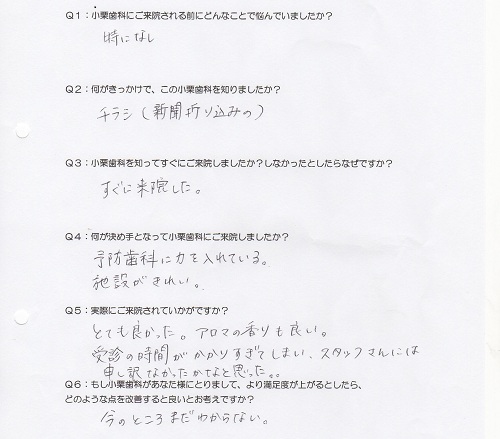 Q1：小栗歯科にご来院される前にどんなことで悩んでいましたか？
時になし
Q2：何がきっかけで、この小栗歯科を知りましたか？
チラシ（新聞折り込みの）
Q3：小栗歯科を知ってすぐにご来院しましたか？しなかったとしたらなぜですか？
すぐに来院した。
Q4：何が決め手となって小栗歯科にご来院しましたか？
予防歯科に力を入れている。
施設がきれい。
Q5：実際にご来院されていかがですか？
とても良かった。アロマの香りも良い。
受診の時間がかかりすぎてしまい、スタッフさんには
申し訳なかったかなと思った。。
Q6：もし小栗歯科があなた様にとりまして、より満足度が上がるとしたら、
どのような点を改善すると良いとお考えですか？
今のところまだわからない。